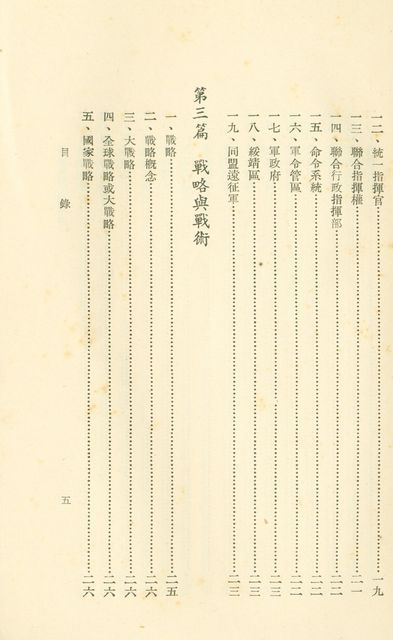 一二、統一指揮官……一九
一三、聯合指揮權……二一
一四、聯合行政指揮部……二二
一五、命令系統……二二
一六、軍令管區……二二
一七、軍政府……二三
一八、綏靖區……二三
一九、同盟遠征軍……二三
第三篇 戰略與戰術
一、戰略……二五
二、戰略概念……二六
三、大戰略……二六
四、全球戰略或大戰略……二六
五、國家戰略……二六
目錄 五